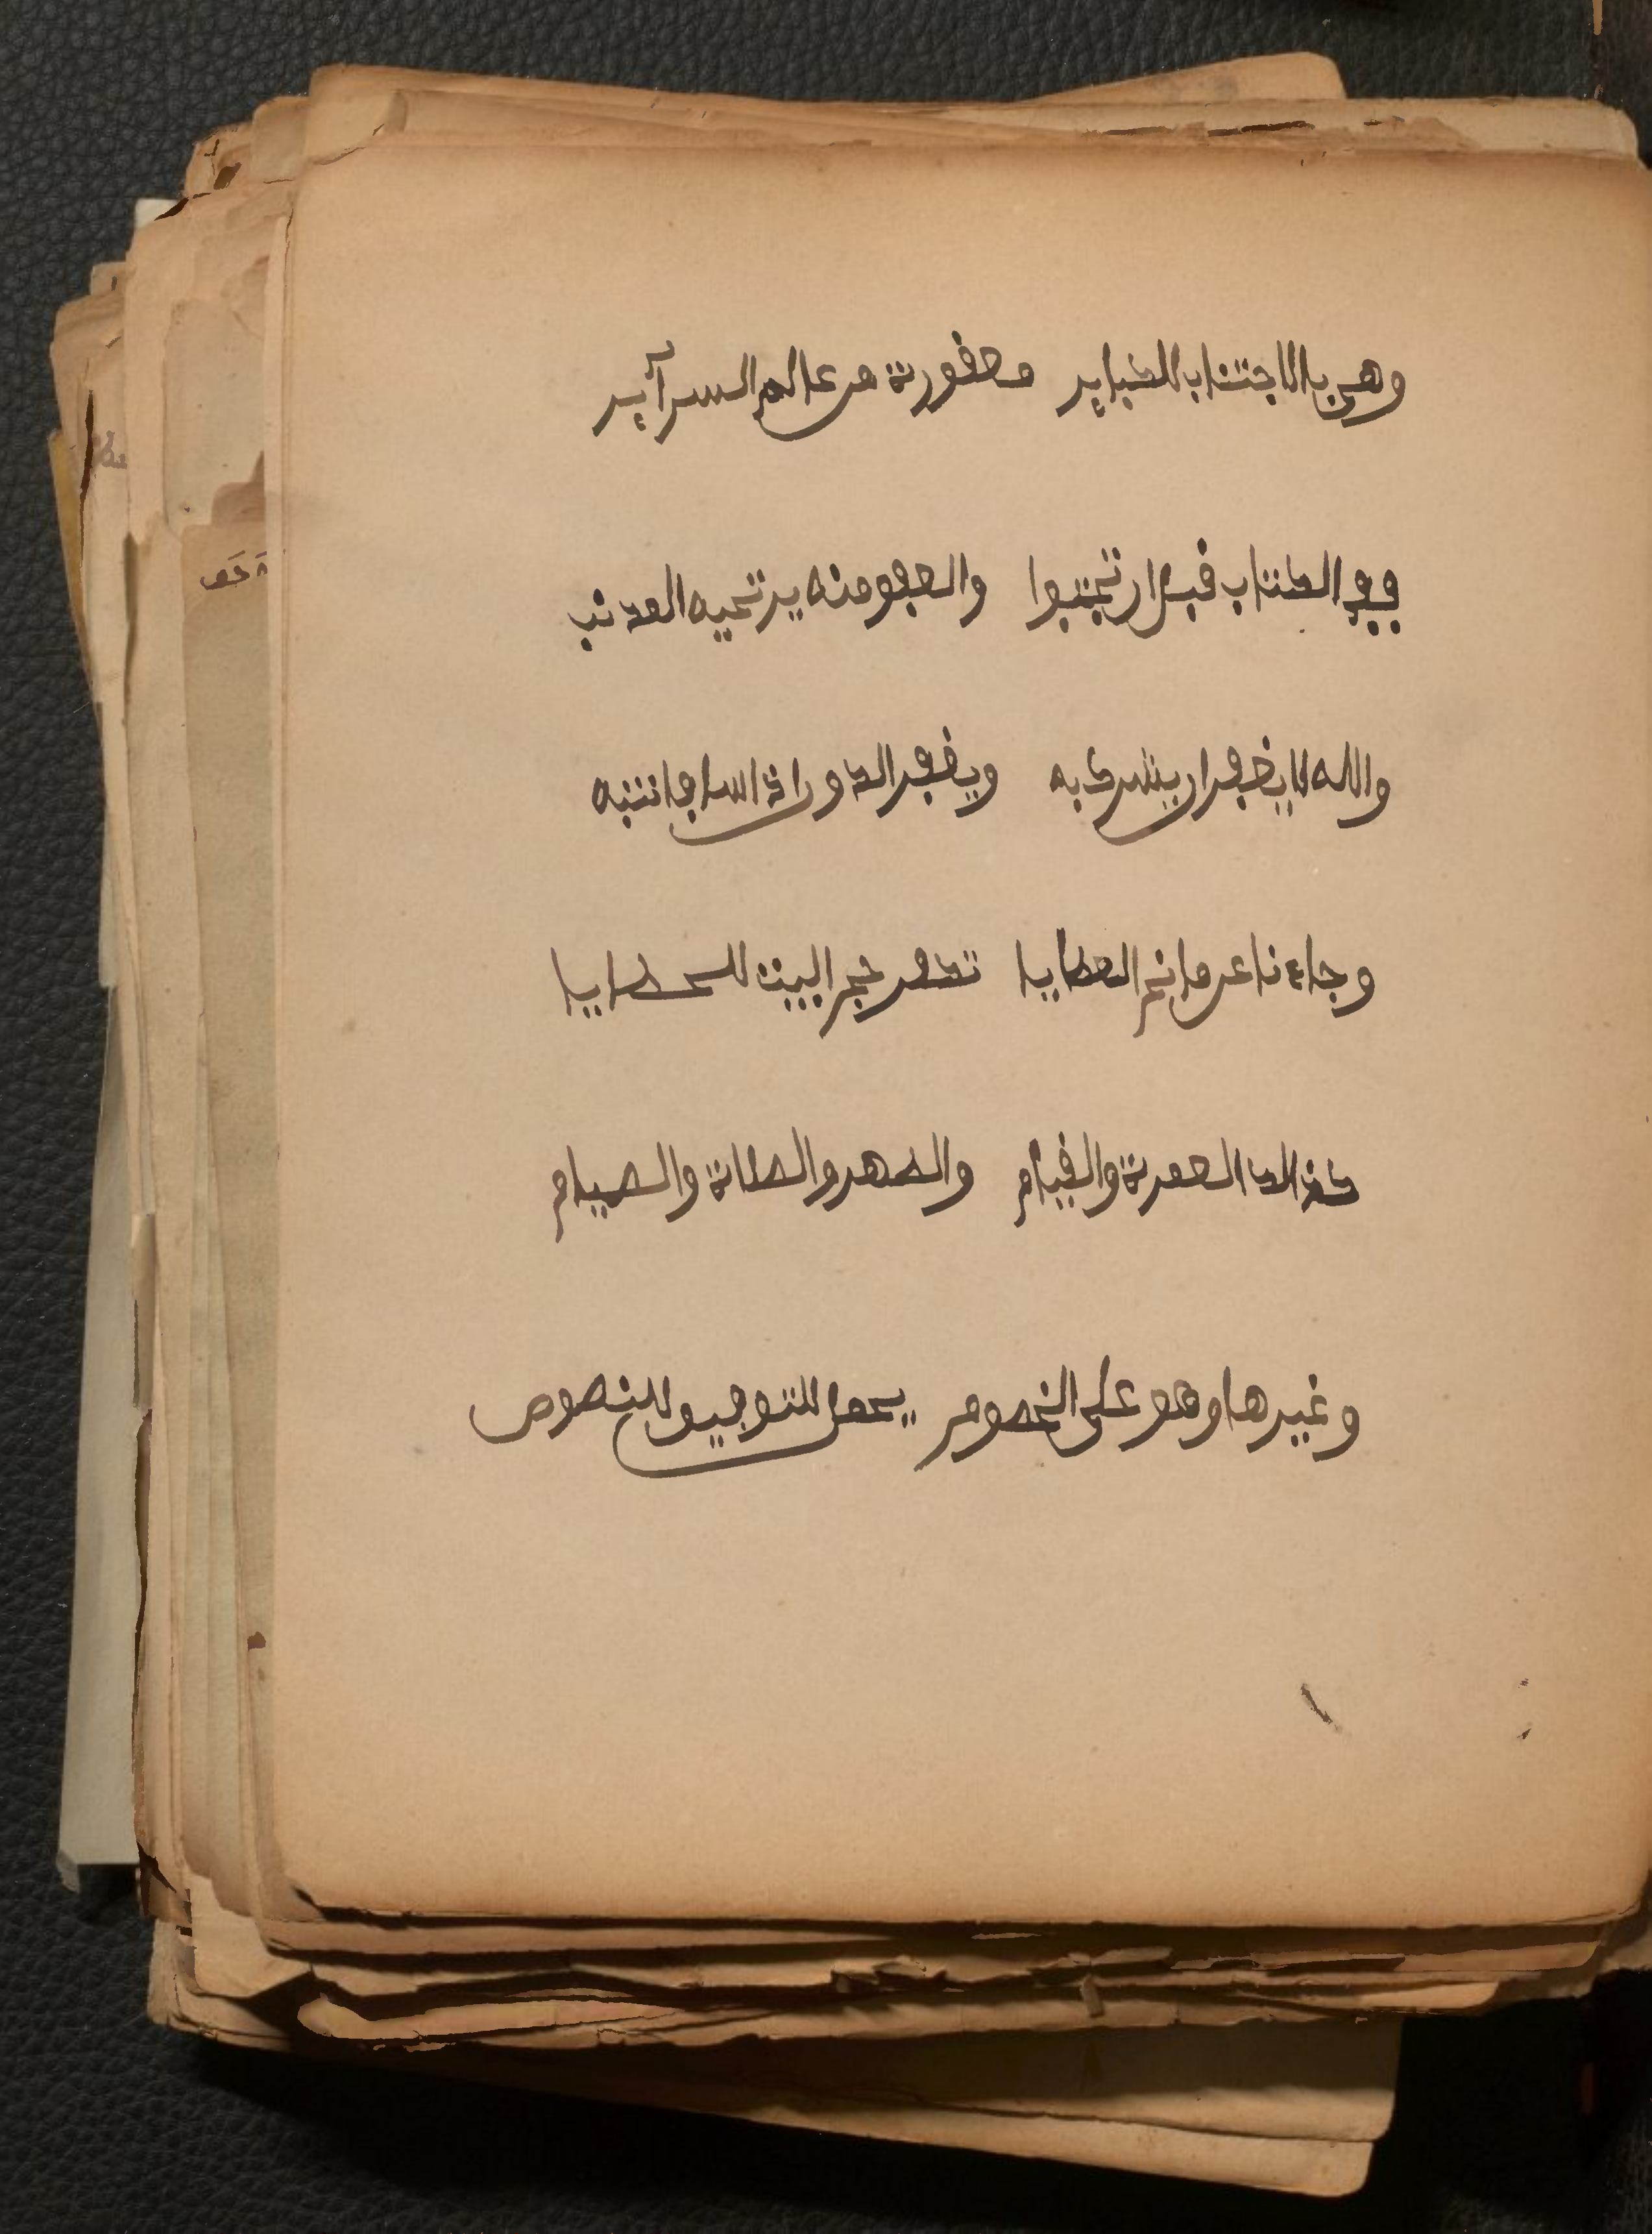 وهي بالاجتناب للكباير مغفورة من عالم السرآير
ففي الكتاب قبل ان تجتنبوا والعفو منه يرتجيه المذنب
والله لا يغفر ان يشرك به ويغفر الدون اذا شاء فانتبه
وجاءنا عن مانح العطايا تكفر حج البيت للخطايا
كذلك العمرة والقيام والطهر والصلاة والصيام
وغيرها وهو على الخصوص يحمل للتوفيق للنصوص